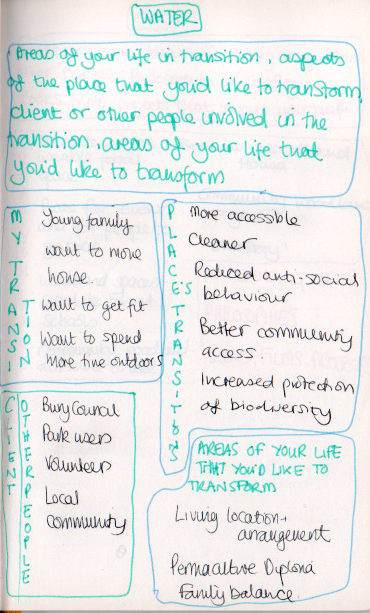 WATER
Areas of your life in transition, aspects
of the place that you'd like to transform,
client or other people involved in the
transition, areas of your life that
you'd like to transform
MY TRANSITION
Young family
want to move
house.
want to get fit
want to spend
more time outdoors
PLACE'S TRANSITIONS
More accessible
Cleaner
Reduced anti-social
behaviour
Better community
access.
Increased protection
of biodiversity
CLIENT OTHER PEOPLE
Bury Council
Park users
Volunteers
Local
community
AREAS OF YOUR LIFE
THAT YOU'D LIKE TO
TRANSFORM
Living location +
arrangement
Permaculture Diploma
Family balance.